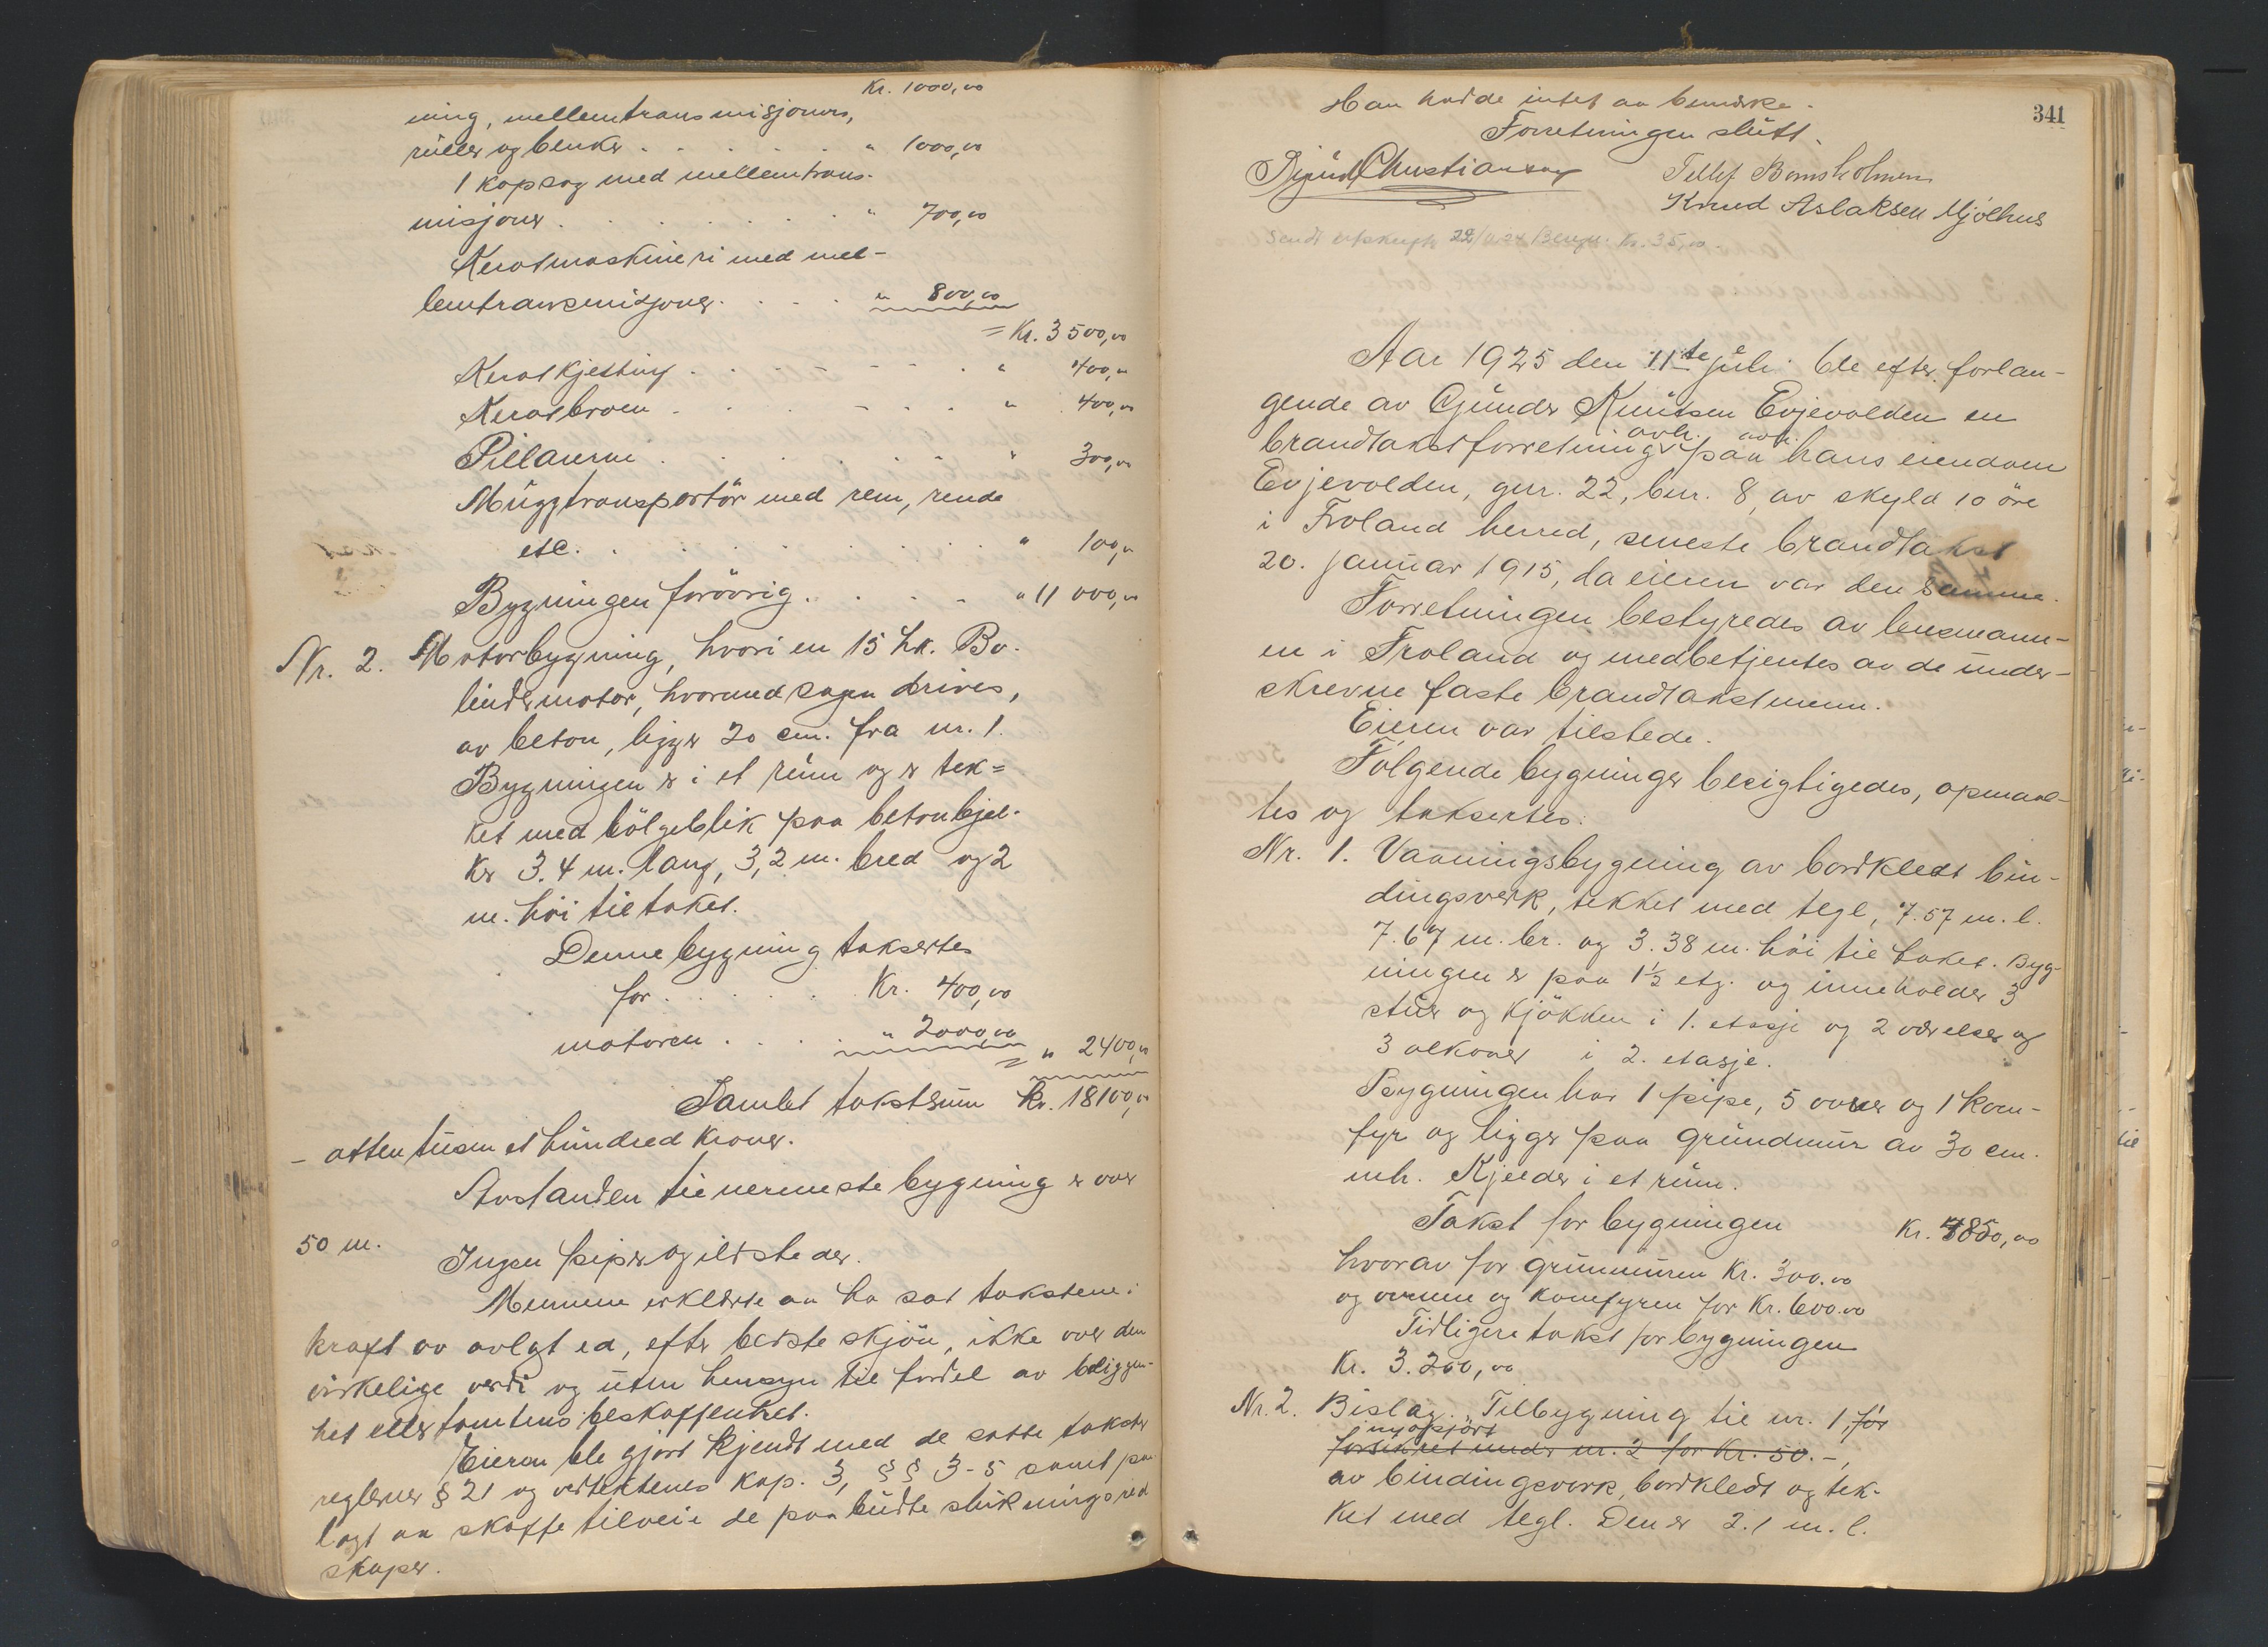 Kr. 1000,00
ning, mellemtransmisjoner,
ruller og benker . . . . . " 1000,00
1 kapsag med mellemtrans-
misjoner . . . . . . " 700,00
Keratmaskineri med mel-
lemtransmisjoner . . . . " 800,00
= Kr. 3500,00
Keratkjetting . . . . . . " 400,00
Keratbroen . . . . . . " 400,00
Pillarerne . . . . . . " 300,00
Muggtransportör med rem, rende
etc. . . . . . . . . " 100,00
Bygningen forövrig . . . . " 11 000,00
Nr. 2. Motorbygning, hvori en 15 hk. Bo-
lindermotor, hvormed sagen drives,
av beton, ligger 20 cm. fra nr. 1.
Bygningen er i et rum og er tek-
ket med bölgeblik paa betonbjel-
ker 3.4 m. lang, 3,2 m. bred og 2
m. höi til taket.
Denne bygning takseres
for . . . . . . Kr. 400,00
motoren . . . . " 2000,00
= " 2400,00
Samlet takstsum Kr. 18100,00
- atten tusen et hundred kroner.
Avstanden til nermeste bygning er over
50 m.
Ingen piper og ildsteder.
Mennene erklærte aa ha sat takstene i
kraft av avlagt ed, efter beste skjön, ikke over den
virkelige verdi og uten hensyn til fordel av beliggen-
het eller tomtens beskaffenhet.
Eieren ble gjort kjendt med de satte takster
reglernes § 21 og vedtektenes kap. 3, §§ 3-5 samt paa
lagt aa skaffe tilveie de paabudte slukningsred
skaper.
341
Han hadde intet aa bemerke.
Forretningen slutt.
Sigurd Christiansen
Tellef Bomsholmen
Knud Aslaksen Mjölhus
Sendt utskrift 22/11 24 Kr. 35,00.
Aar 1925 den 11te juli ble efter forlan-
gende av Gunder Knutsen Evjevolden en
brandtakstforretning avh. paa hans eiendom
Evjevolden, gnr. 22, bnr. 8, av skyld 10 öre
i Froland herred, seneste brandtakst
20. januar 1915, da eieren var den samme.
Forretningen bestyredes av lensmann-
en i Froland og medbetjentes av de under-
skrevne faste brandtakstmenn.
Eieren var tilstede.
Fölgende bygninger besigtigedes, opmaal-
tes og taksertes:
Nr. 1. Vaaningsbygning av bordkledt bin-
dingsverk, tekket med tegl, 7.57 m. l.
7.67 m. br. og 3.38 m. höi til taket. Byg-
ningen er paa 1½ etg. og inneholder 3
stuer og kjökken i 1. etasje og 2 værelser og
3 alkover i 2. etasje.
Bygningen har 1 pipe, 5 ovner og 1 kom-
fyr og ligger paa grundmur av 30 cm.
mh. Kjelder i et rum.
Takst for bygningen Kr. 4850,00
hvorav for grunmuren Kr. 300.00
og ovnene og komfyren for Kr. 600.00
Tidligere takst for bygningen
Kr. 3.200,00
Nr. 2. Bislag. Tilbygning til nr. 1, för
nyopfört
forsikret under nr. 2 for Kr. 50.-,
av bindingsverk, bordkledt og tek-
ket med tegl. Den er 2.1 m. l.